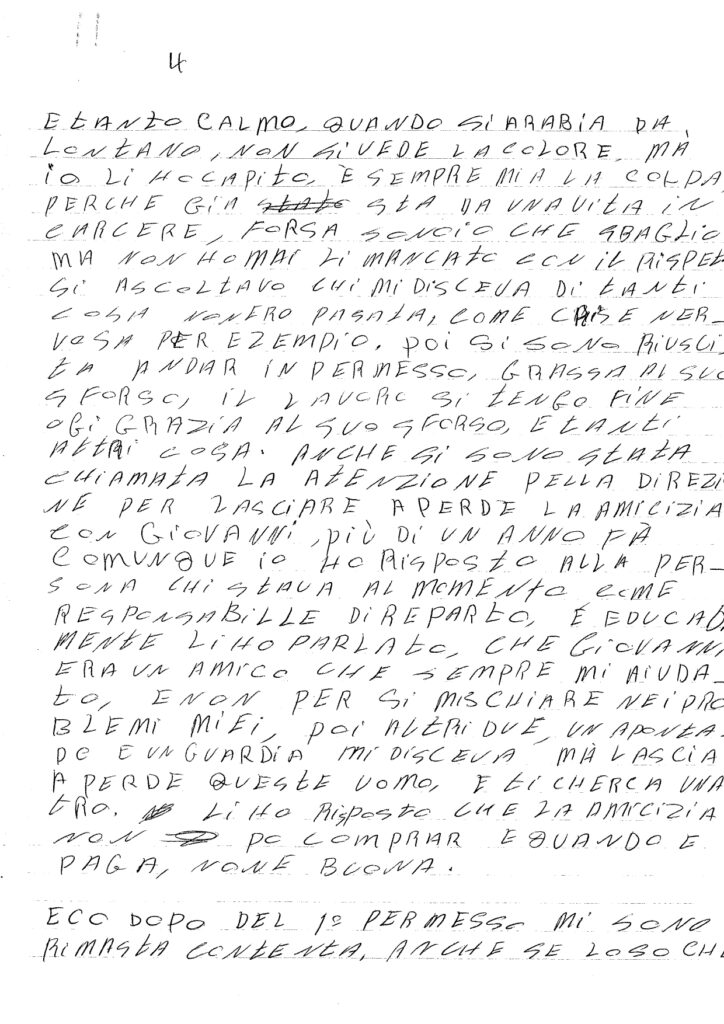 4
E TANTO CALMO, QUANDO SI ARABIA DA
LONTANO, NON SI VEDE LA COLORE, MA
IO LI HO CAPITO, E SEMPRE MIA LA COLPA
PERCHE GIA STA DA UNA VITA IN
CARCERE, FORSA SONO IO CHE SBAGLIO
MA NON HO MAI LI MANCATO CON IL RISPET
SI ASCOLTAVO CHI MI DISCEVA DI TANTI
COSA NON ERO PAGATA, COME CRISE NER-
VOSA PER EZEMPIO. POI SI SONO RIUSCI
TA ANDAR IN PERMESSO, GRASSA AL SUO
SFORSO, IL LAVORO SI TENGO FINE
OGI GRAZIA AL SUO SFORSO, E TANTI
ALTRI COSA. ANCHE SI SONO STATA
CHIAMATA LA ATENZIONE PELLA DIREZI
NE PER LASCIARE A PERDE LA AMICIZIA
CON GIOVANNI, PIÙ DI UN ANNO FA
COMUNQUE IO HO RISPOSTO ALLA PER-
SONA CHI STAVA AL MOMENTO COME
RESPONSABILLE DI REPARTO, E EDUCADA
MENTE LI HO PARLATO, CHE GIOVANNI
ERA UN AMICO CHE SEMPRE MI AIUDA-
TO, E NON PER SI MISCHIARE NEI PRO
BLEMI MIEI, POI ALTRI DUE, UN APONTA-
DO E UN GUARDIA MI DISCEVA MA LASCIA
A PERDE QUESTE UOMO, E TI CHERCA UNA
TRO. LI HO RISPOSTO CHE LA AMICIZIA
NON PO COMPRAR E QUANDO E
PAGA, NON E BUONA.
ECO DOPO DEL 1º PERMESSO MI SONO
RIMASTA CONTENTA, ANCHE SE LO SO CHE